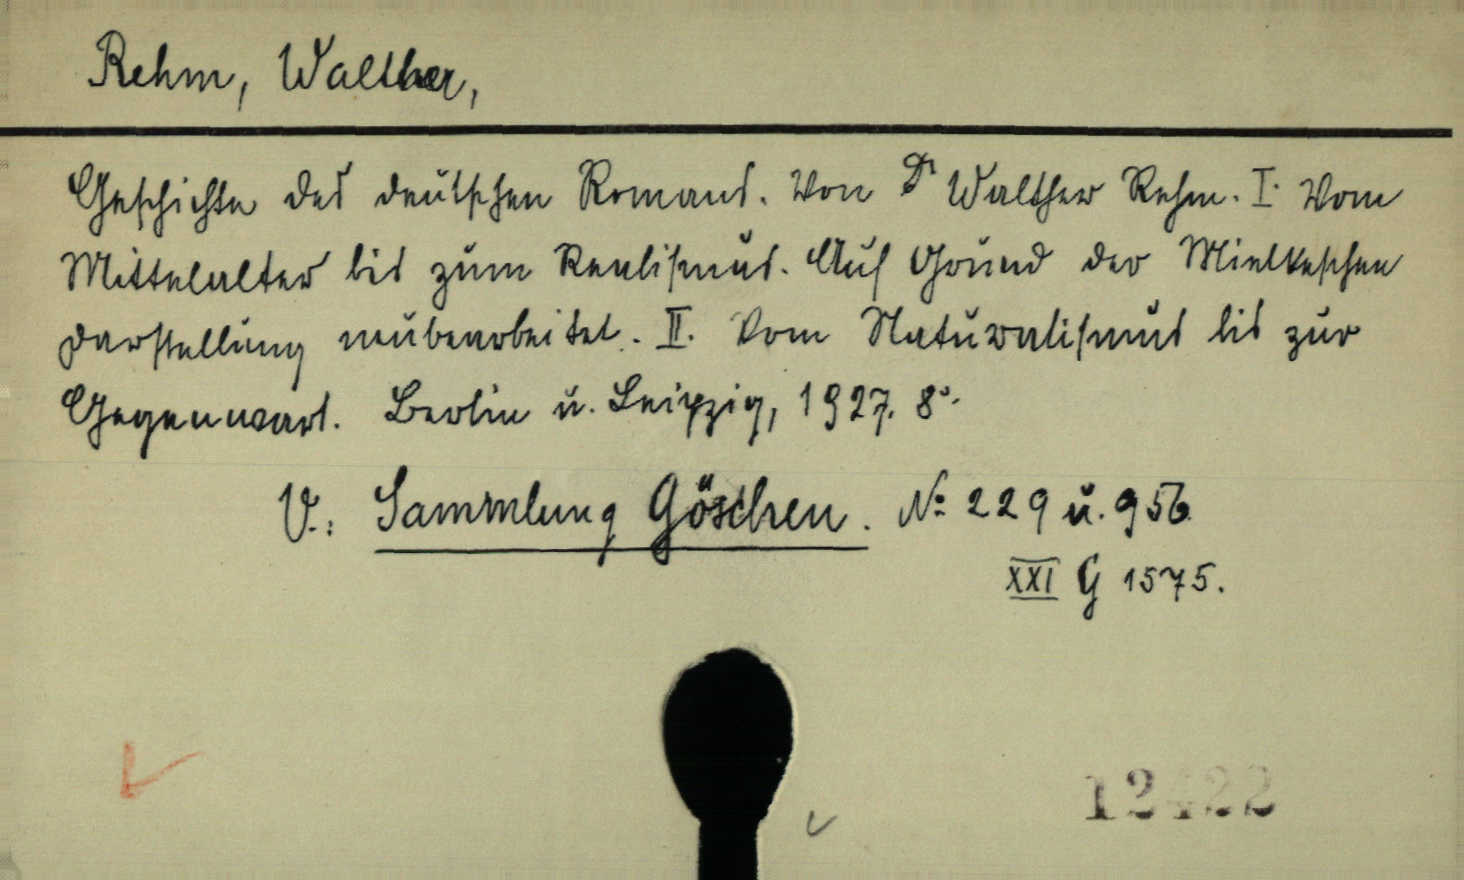 Rehm, Walther,
Geschichte des deutschen Romans. Von Dr Walther Rehm. I. Vom
Mittelalter bis zum Realismus. Auf Grund der Mielkeschen
Darstellung neubearbeitet. II. Vom Naturalismus bis zur
Gegenwart. Berlin u. Leipzig, 1927. 8º.
V.: Sammlung Göschen. No 229 u. 956
XXI G 1575.
12422